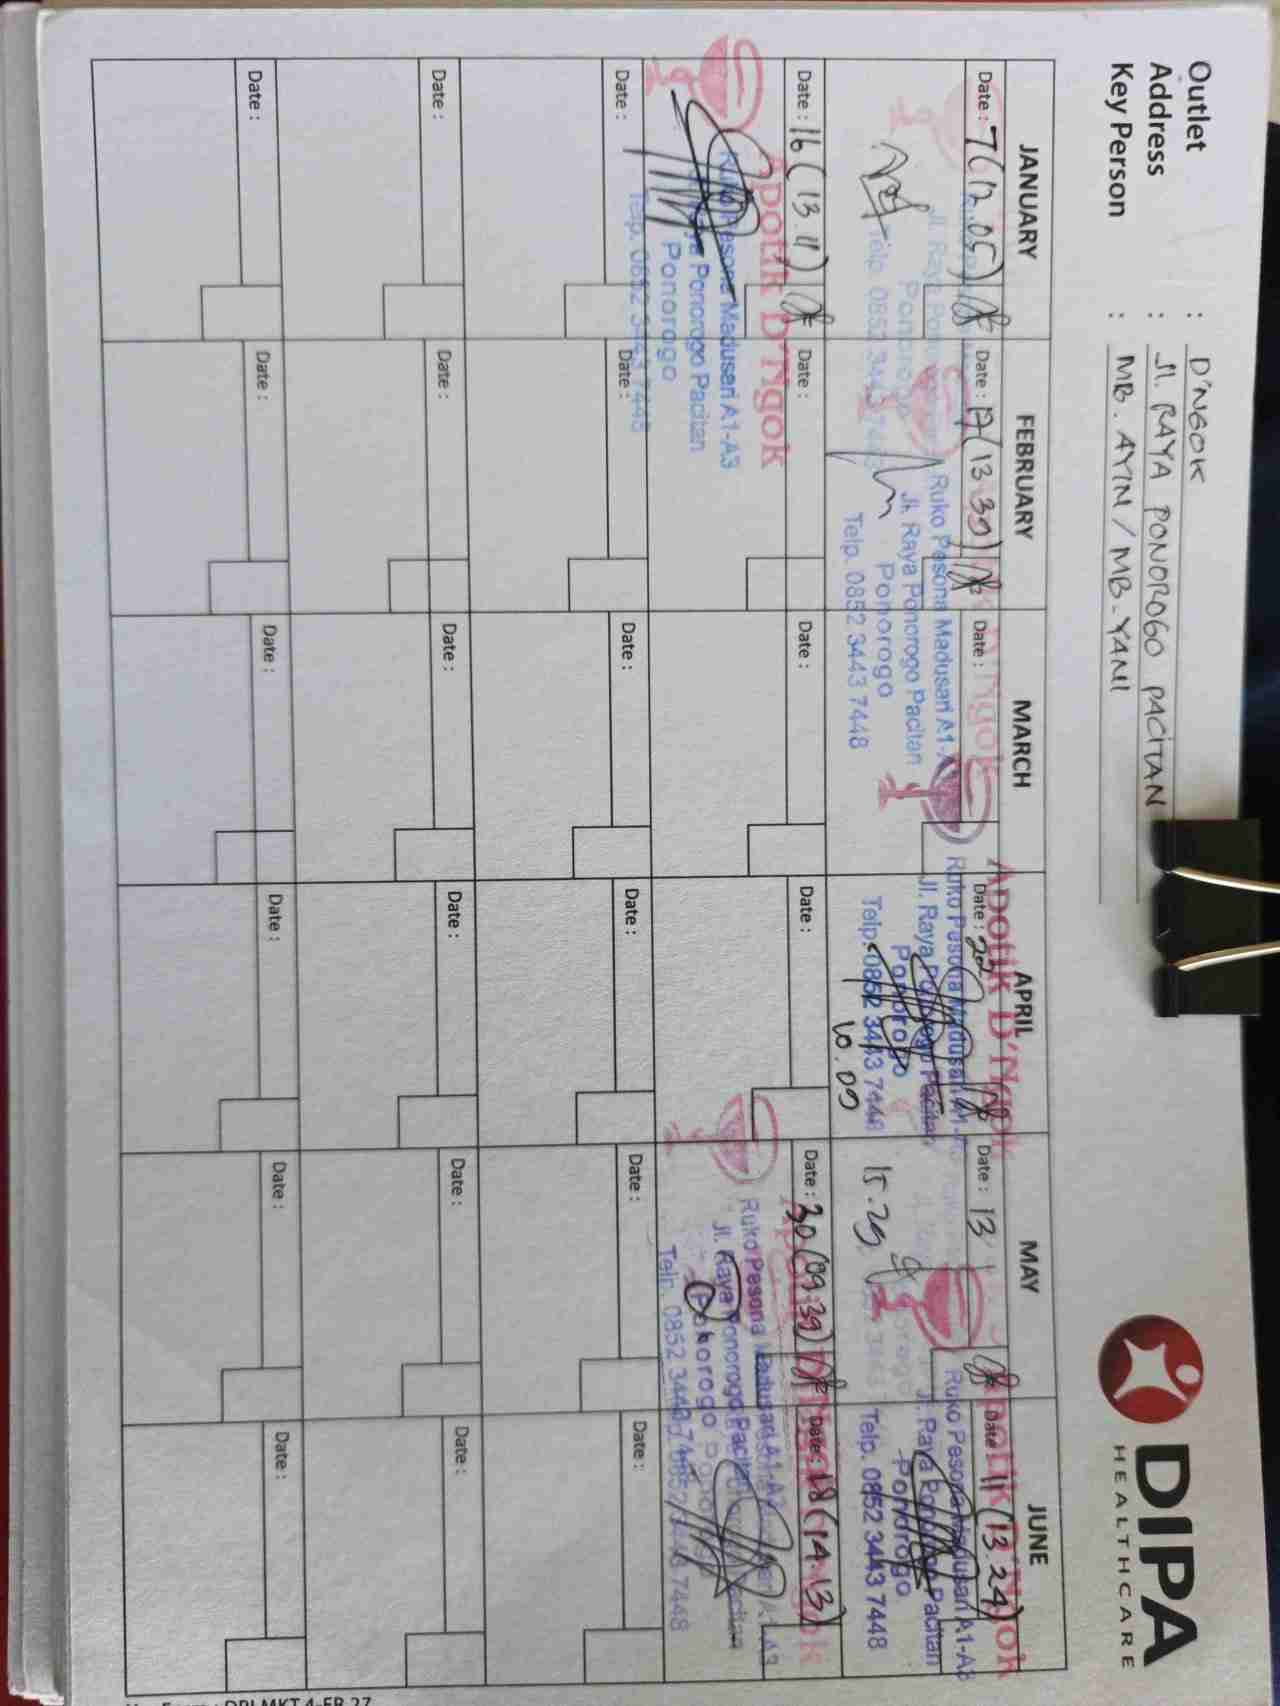 Outlet : D'NGOK
Address : Jl. RAYA PONOROGO PACITAN
Key Person : MB. AYIN / MB. YANI
DIPA
HEALTHCARE
JANUARY FEBRUARY MARCH APRIL MAY JUNE
Date : 7 (12.05) Date : 17 (13.39) Date : Date : 20 Date : 13 Date : 11 (13.24)
Apotik D'Ngok
Ruko Pesona Madusari A1-A3
Jl. Raya Ponorogo Pacitan
Ponorogo
Telp. 0852 3443 7448
10.09
15.29
Date : 16 (13.11) Date : Date : Date : Date : 30 (09.39) Date : 18 (14.13)
Apotik D'Ngok
Ruko Pesona Madusari A1-A3
Jl. Raya Ponorogo Pacitan
Ponorogo
Telp. 0852 3443 7448
Date : Date : Date : Date : Date : Date :
Date : Date : Date : Date : Date : Date :
Date : Date : Date : Date : Date : Date :